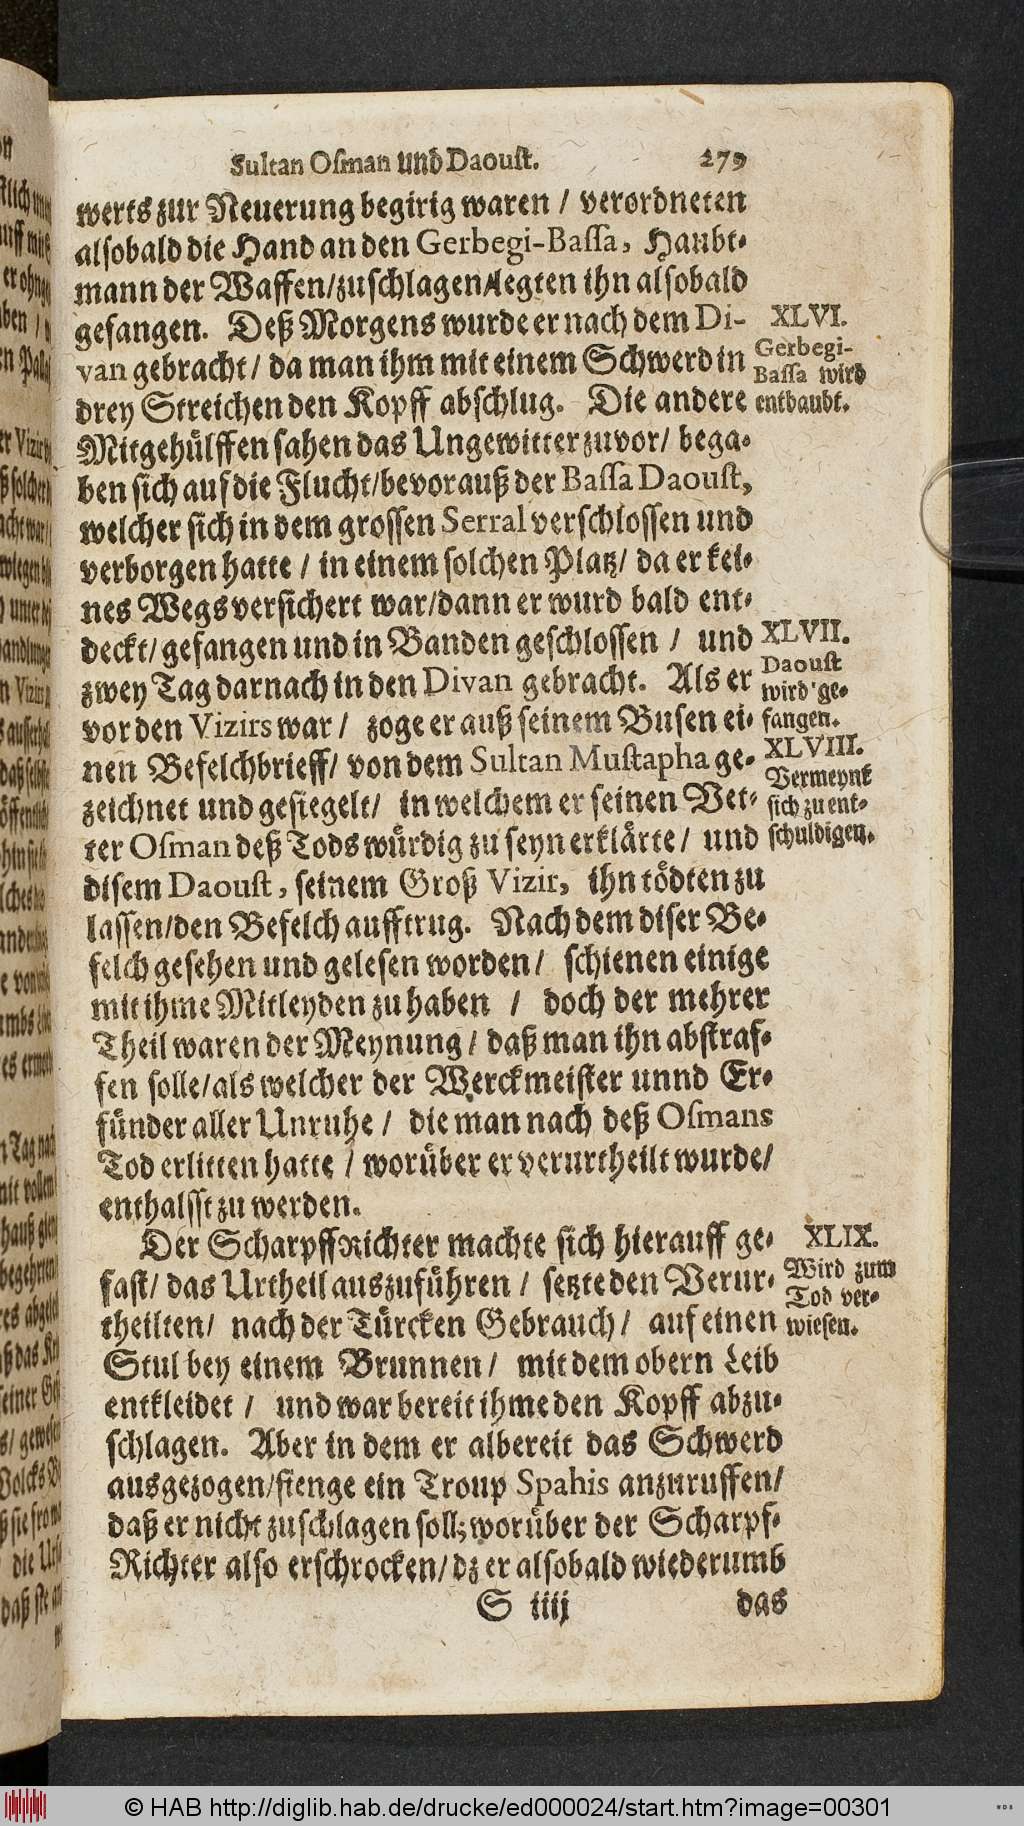 Sultan Osman und Daoust. 279
werts zur Neuerung begirig waren / verordneten
alsobald die Hand an den Gerbegi-Bassa, Haubt-
mann der Waffen/zuschlagen/legten ihn alsobald
gefangen. Deß Morgens wurde er nach dem Di-
van gebracht / da man ihm mit einem Schwerd in
drey Streichen den Kopff abschlug. Die andere
Mitgehülffen sahen das Ungewitter zuvor / bega-
ben sich auf die Flucht/bevorauß der Bassa Daoust,
welcher sich in dem grossen Serral verschlossen und
verborgen hatte / in einem solchen Platz/ da er kei-
nes Wegs versichert war/dann er wurd bald ent-
deckt/ gefangen und in Banden geschlossen / und
zwey Tag darnach in den Divan gebracht. Als er
vor den Vizirs war / zoge er auß seinem Busen ei-
nen Befelchbrieff/ von dem Sultan Mustapha ge-
zeichnet und gesiegelt/ in welchem er seinen Vet-
ter Osman deß Tods würdig zu seyn erklärte / und
disem Daoust, seinem Groß Vizir, ihn tödten zu
lassen/den Befelch aufftrug. Nach dem diser Be-
felch gesehen und gelesen worden / schienen einige
mit ihme Mitleyden zu haben / doch der mehrer
Theil waren der Meynung / daß man ihn abstraf-
fen solle/als welcher der Werckmeister unnd Er-
fünder aller Unruhe / die man nach deß Osmans
Tod erlitten hatte / worüber er verurtheilt wurde/
enthalsst zu werden.
Der ScharpffRichter machte sich hierauff ge-
fast/ das Urtheil auszuführen / setzte den Verur-
theilten/ nach der Türcken Gebrauch / auf einen
Stul bey einem Brunnen / mit dem obern Leib
entkleidet / und war bereit ihme den Kopff abzu-
schlagen. Aber in dem er albereit das Schwerd
ausgezogen/fienge ein Troup Spahis anzuruffen/
daß er nicht zuschlagen soll; worüber der Scharpf-
Richter also erschrocken/dz er alsobald wiederumb
S iiij das
XLVI.
Gerbegi-
Bassa wird
enthaubt.
XLVII.
Daoust
wird ge-
fangen.
XLVIII.
Vermeynt
sich zu ent-
schuldigen.
XLIX.
Wird zum
Tod ver-
wiesen.
© HAB http://diglib.hab.de/drucke/ed000024/start.htm?image=00301